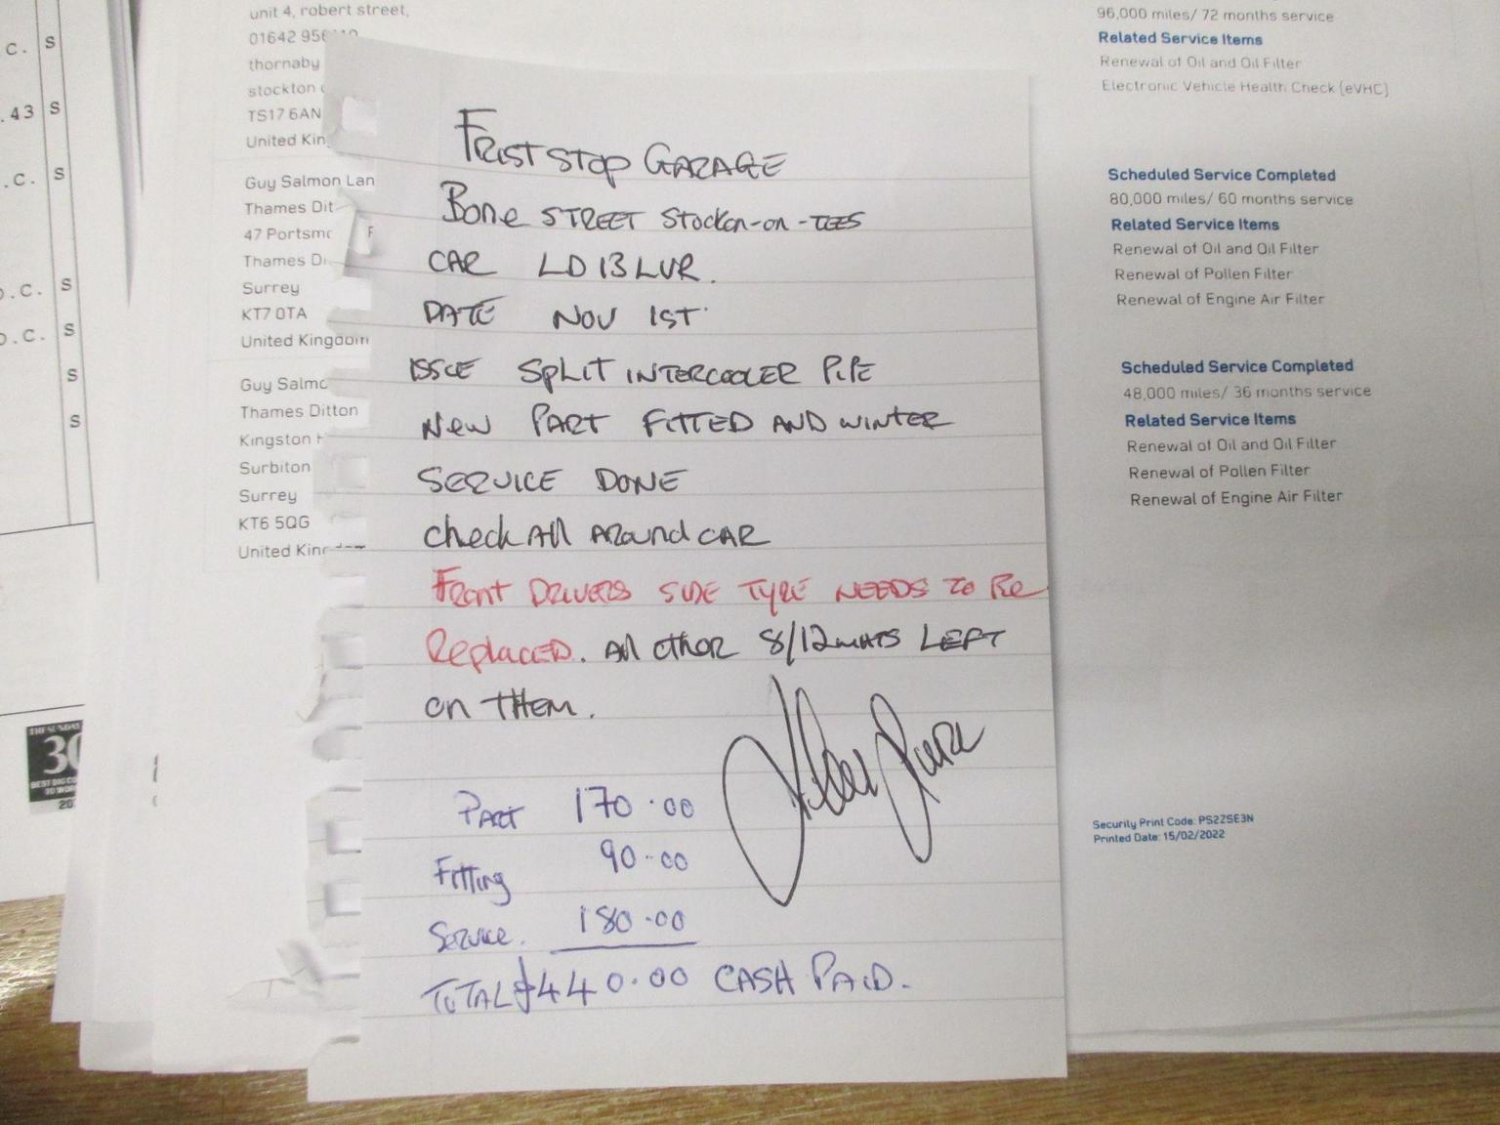 C. S
.43 S
.C. S
D.C. S
D.C. S
S
S
THE SUNDAY
30
BEST BIG CO
TO WOR
20
unit 4, robert street,
01642 956
thornaby
stockton
TS17 6AN
United Kin
Guy Salmon Lan
Thames Dit
47 Portsmo
Thames Di
Surrey
KT7 0TA
United Kingdom
Guy Salmo
Thames Ditton
Kingston
Surbiton
Surrey
KT6 5QG
United King
FRIST STOP GARAGE
Bone STREET Stockon-on-TEES
CAR LD13LVR.
DATE NOV 1ST
ISSCE SPLIT INTERCOOLER PIPE
NEW PART FITTED AND WINTER
SERVICE DONE
check All AROUND CAR
FRONT DRIVERS SIDE TYRE NEEDS TO BE
REPlacED. All other 8/12 LEFT
on THEM.
PART 170.00
Fitting 90.00
SERVICE. 180.00
TOTAL £440.00 CASH PAID.
96,000 miles/ 72 months service
Related Service Items
Renewal of Oil and Oil Filter
Electronic Vehicle Health Check (eVHC)
Scheduled Service Completed
80,000 miles/ 60 months service
Related Service Items
Renewal of Oil and Oil Filter
Renewal of Pollen Filter
Renewal of Engine Air Filter
Scheduled Service Completed
48,000 miles/ 36 months service
Related Service Items
Renewal of Oil and Oil Filter
Renewal of Pollen Filter
Renewal of Engine Air Filter
Security Print Code: PS2ZSE3N
Printed Date: 15/02/2022